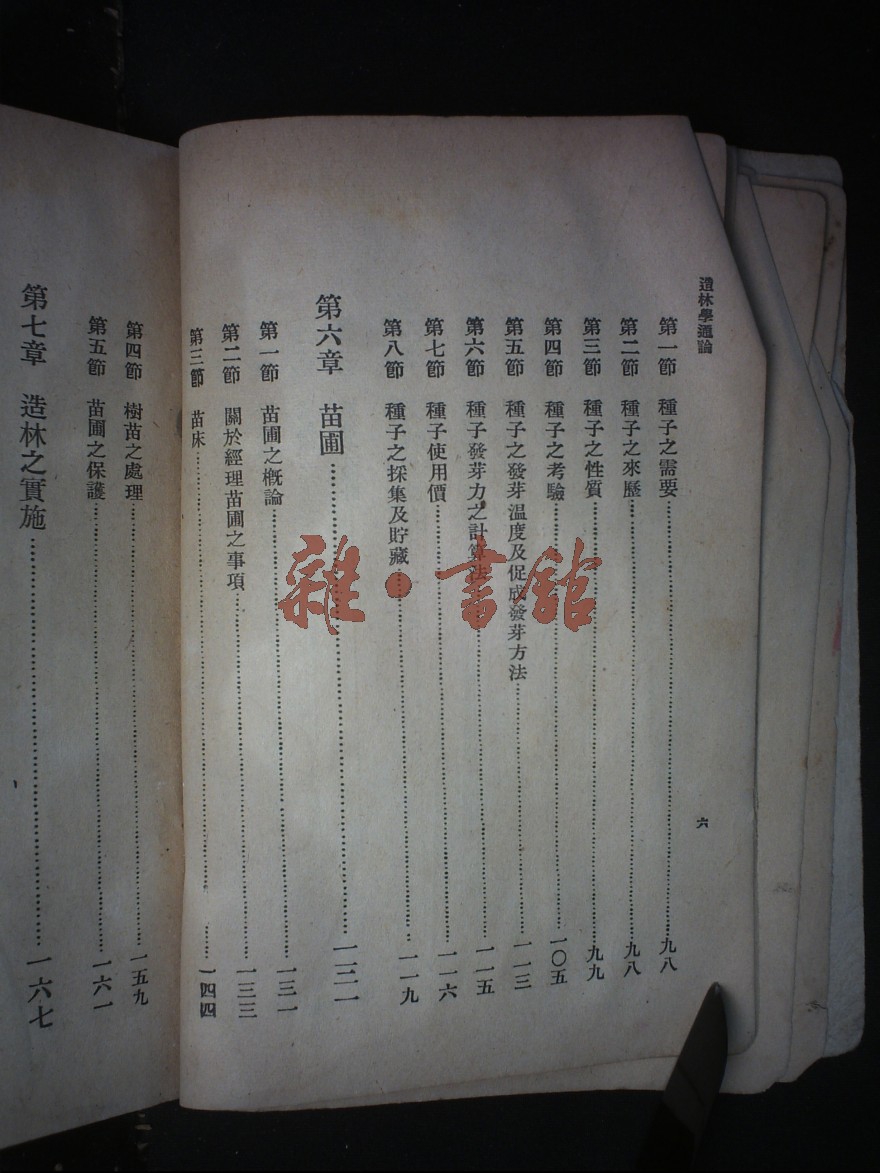 造林學通論
六
第一節 種子之需要……九八
第二節 種子之來歷……九八
第三節 種子之性質……九九
第四節 種子之考驗……一〇五
第五節 種子之發芽溫度及促成發芽方法……一一三
第六節 種子發芽力之計算法……一一五
第七節 種子使用價……一一六
第八節 種子之採集及貯藏……一一九
第六章 苗圃……一二一
第一節 苗圃之概論……一三一
第二節 關於經理苗圃之事項……一三三
第三節 苗床……一四四
第四節 樹苗之處理……一五九
第五節 苗圃之保護……一六一
第七章 造林之實施……一六七
雜·書館